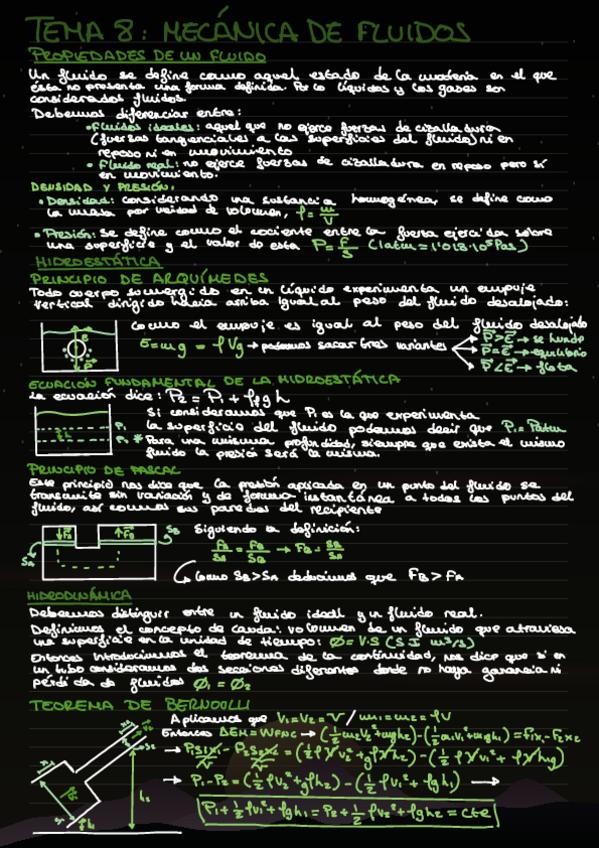 TEMA 8: MECÁNICA DE FLUIDOS
PROPIEDADES DE UN FLUIDO
Un fluido se define como aquel estado de la materia en el que
ésta no presenta una forma definida. Por lo líquidos y los gases son
considerados fluidos.
Debemos diferenciar entre:
•Fluidos ideales: aquel que no ejerce fuerzas de cizalladura
(fuerzas tangenciales a las superficies del fluido) ni en
reposo ni en movimiento
• Fluido real: no ejerce fuerzas de cizalladura en reposo pero sí
en movimiento.
DENSIDAD Y PRESIÓN.
•Densidad: considerando una sustancia homogénea, se define como
la masa por unidad de volumen, ρ = m/V
•Presión: Se define como el cociente entre la fuerza ejercida sobre
una superficie y el valor de esta P = F/S (1atm = 1'013·10⁵Pas)
HIDROESTÁTICA
PRINCIPIO DE ARQUÍMEDES
Todo cuerpo sumergido en un líquido experimenta un empuje
vertical dirigido hacia arriba igual al peso del fluido desalojado:
Como el empuje es igual al peso del fluido desalojado
E=mg = ρVg → podemos sacar tres variantes
P>E → se hunde
P=E → equilibrio
P<E → flota
ECUACIÓN FUNDAMENTAL DE LA HIDROESTÁTICA
La ecuación dice: P₂ = P₁ + ρgh
Si consideramos que P₁ es la que experimenta
la superficie del fluido podemos decir que P₁ = Patm
* Para una misma profundidad, siempre que exista el mismo
fluido la presión será la misma.
PRINCIPIO DE PASCAL
Este principio nos dice que la presión aplicada en un punto del fluido se
transmite sin variación y de forma instantánea a todos los puntos del
fluido, así como sus paredes del recipiente
Siguiendo la definición:
Como SB>SA deducimos que FB>FA
HIDRODINÁMICA
Debemos distinguir entre un fluido ideal y un fluido real.
Definimos el concepto de caudal: volumen de un fluido que atraviesa
una superficie en la unidad de tiempo: Ø=V·S (S.I m³/s)
Entonces introducimos el teorema de la continuidad, nos dice que si en
un tubo consideramos dos secciones diferentes donde no haya ganancia ni
pérdida de fluidos Ø₁ = Ø₂
TEOREMA DE BERNOULLI
Aplicamos que V₁=V₂=V / m₁=m₂=ρV
Entonces ΔEM=WFNC → (½m₂v₂²+mgh₂)-(½m₁v₁²+mgh₁) = F₁x₁-F₂x₂
→ P₁-P₂ = (½ρv₂²+gρh₂)-(½ρv₁²+ρgh₁) →
P₁+½ρv₁²+ρgh₁=P₂+½ρv₂²+ρgh₂=cte